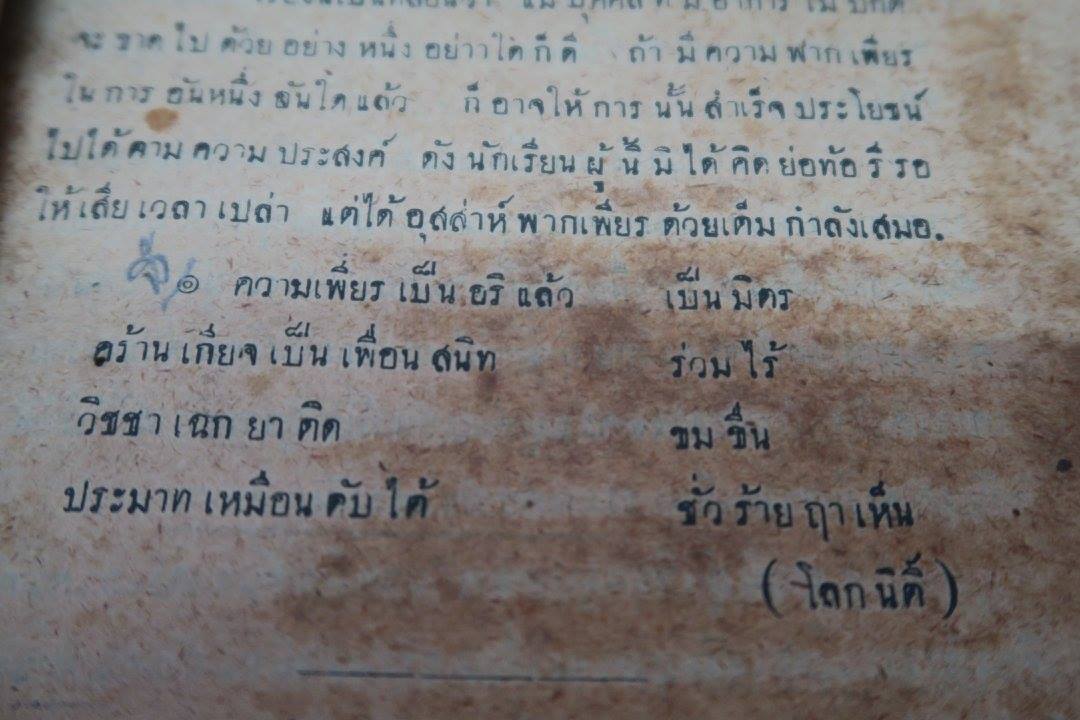 แม้ บุคคล ที่ มี อาการ ไม่ ปกติ
จะ ขาด ไป ด้วย อย่าง หนึ่ง อย่าง ใด ก็ ดี ถ้า มี ความ พาก เพียร
ใน การ อันหนึ่ง อันใด แล้ว ก็ อาจ ให้ การ นั้น สำเร็จ ประโยชน์
ไปได้ ตาม ความ ประสงค์ ดัง นักเรียน ผู้ นี้ มิ ได้ คิด ย่อท้อ รี รอ
ให้ เสีย เวลา เปล่า แต่ได้ อุสส่าห์ พากเพียร ด้วยเต็ม กำลังเสมอ.
จำ ๑ ความเพียร เป็น อริ แล้ว เป็น มิตร
คร้าน เกียจ เป็น เพื่อน สนิท ร่วม ไร้
วิชชา เฉก ยา ติด ขม ขื่น
ประมาท เหมือน ดับ ใต้ ชั่ว ร้าย ฤา เห็น
( โลก นิติ์ )